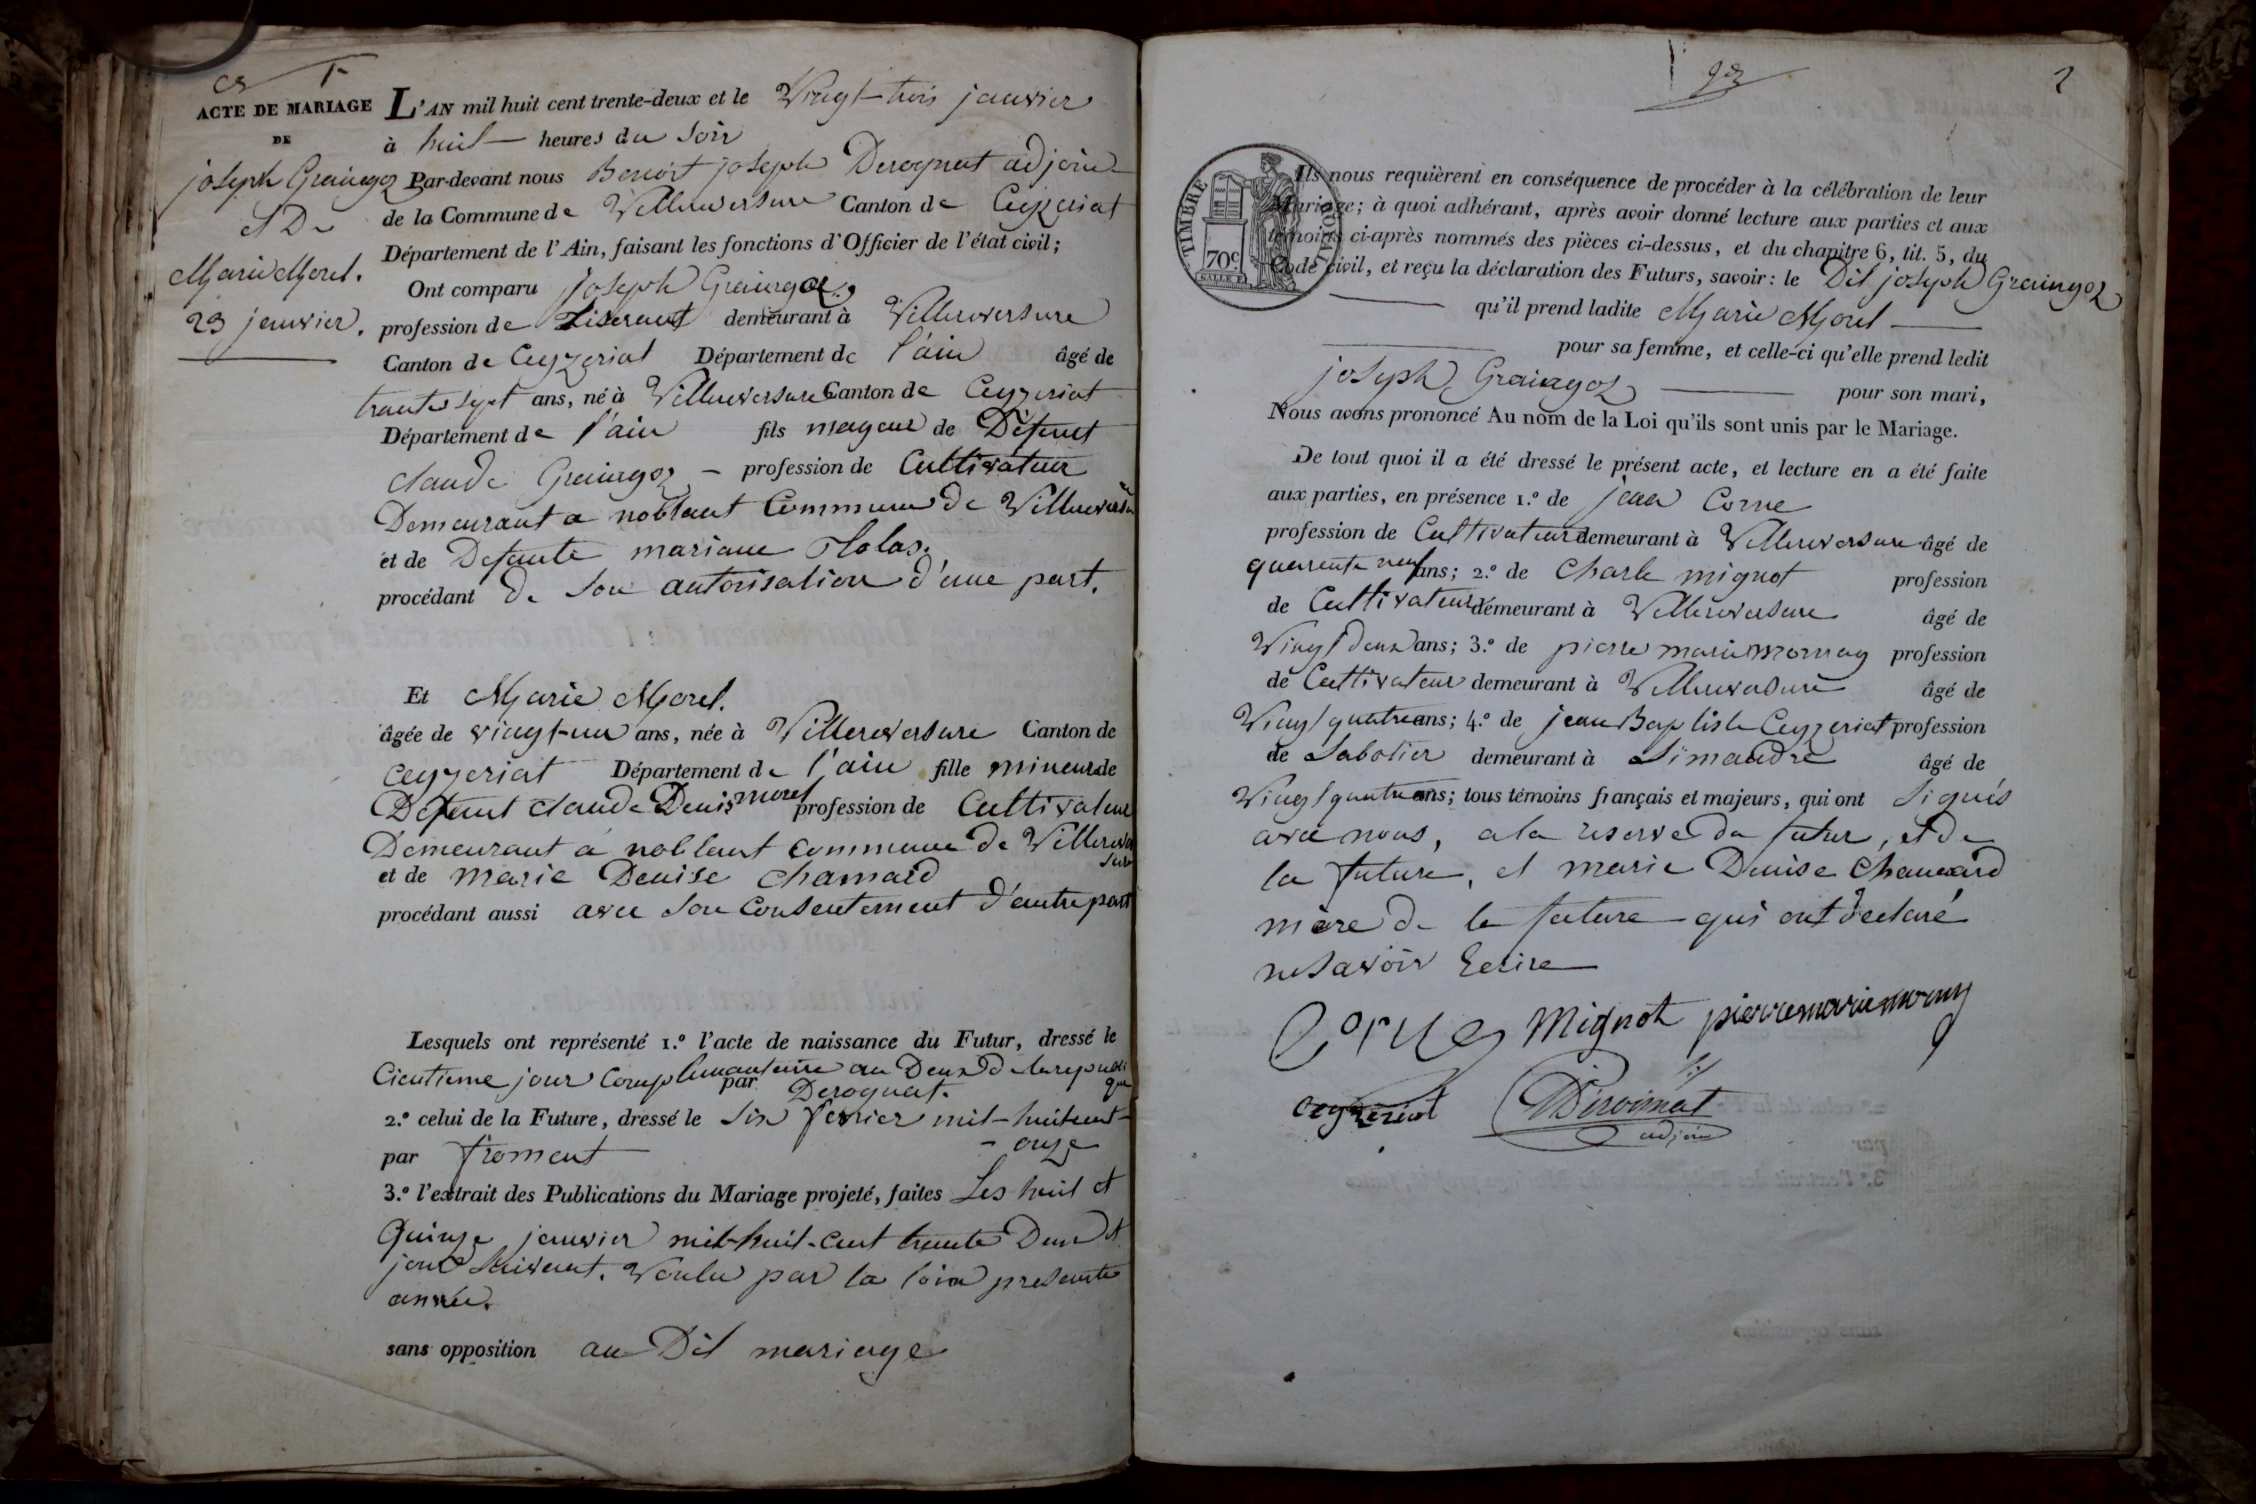 ACTE DE MARIAGE
DE
joseph Graingoz
et De
Marie Morel.
23 janvier.
L'AN mil huit cent trente-deux et le Vingt-trois janvier
à huit heures du soir
Par-devant nous Benoit joseph Derognat adjoint
de la Commune de Villereversure Canton de Ceyzeriat
Département de l'Ain, faisant les fonctions d'Officier de l'état civil;
Ont comparu joseph Graingoz,
profession de Tisserant demeurant à Villereversure
Canton de Ceyzeriat Département de l'ain âgé de
trente sept ans, né à Villereversure Canton de Ceyzeriat
Département de l'ain fils mageur de Défunt
claude Graingoz profession de Cultivateur
Demeurant a noblent Commune de Villereversure
et de Defunte mariane
procédant de son autorisation d'une part.
Et Marie Morel.
âgée de vingt-un ans, née à Villereversure Canton de
ceyzeriat Département de l'ain fille mineur de
Defunt claude Denis morel profession de Cultivateur
Demeurant a noblent commune de Villereversure
et de marie Denise chanard
procédant aussi avec son consentement d'autre part
Lesquels ont représenté 1.º l'acte de naissance du Futur, dressé le
jour an Deux de la republique
par Derognat.
2.º celui de la Future, dressé le six fevrier mil-huit cent-
onze
par froment
3.º l'extrait des Publications du Mariage projeté, faites Les huit et
Quinze janvier mil-huit-cent trente Deux et
jour suivant. voulu par la loi presente
année.
sans opposition au Dit mariage
2
TIMBRE ROYAL
70c
Ils nous requièrent en conséquence de procéder à la célébration de leur
Mariage; à quoi adhérant, après avoir donné lecture aux parties et aux
témoins ci-après nommés des pièces ci-dessus, et du chapitre 6, tit. 5, du
Code civil, et reçu la déclaration des Futurs, savoir: le Dit joseph Graingoz
qu'il prend ladite Marie Morel
pour sa femme, et celle-ci qu'elle prend ledit
joseph Graingoz pour son mari,
Nous avons prononcé Au nom de la Loi qu'ils sont unis par le Mariage.
De tout quoi il a été dressé le présent acte, et lecture en a été faite
aux parties, en présence 1.º de jean Corne
profession de Cultivateur demeurant à Villereversure âgé de
quarente neuf ans; 2.º de Charle mignot profession
de Cultivateur demeurant à Villereversure âgé de
Vingt deux ans; 3.º de pierre marie mornay profession
de Cultivateur demeurant à Villereversure âgé de
Vingt quatre ans; 4.º de jean Baptiste Ceyzeriat profession
de Sabotier demeurant à Simandre âgé de
Vingt quatre ans; tous témoins français et majeurs, qui ont signés
avec nous, a la reserve du futur, et de
la future, et marie Denise Chanard
mère de la future qui ont declaré
ne savoir Ecrire
Corne Mignot pierre marie mornay
ceyzeriat Derognat
adjoint